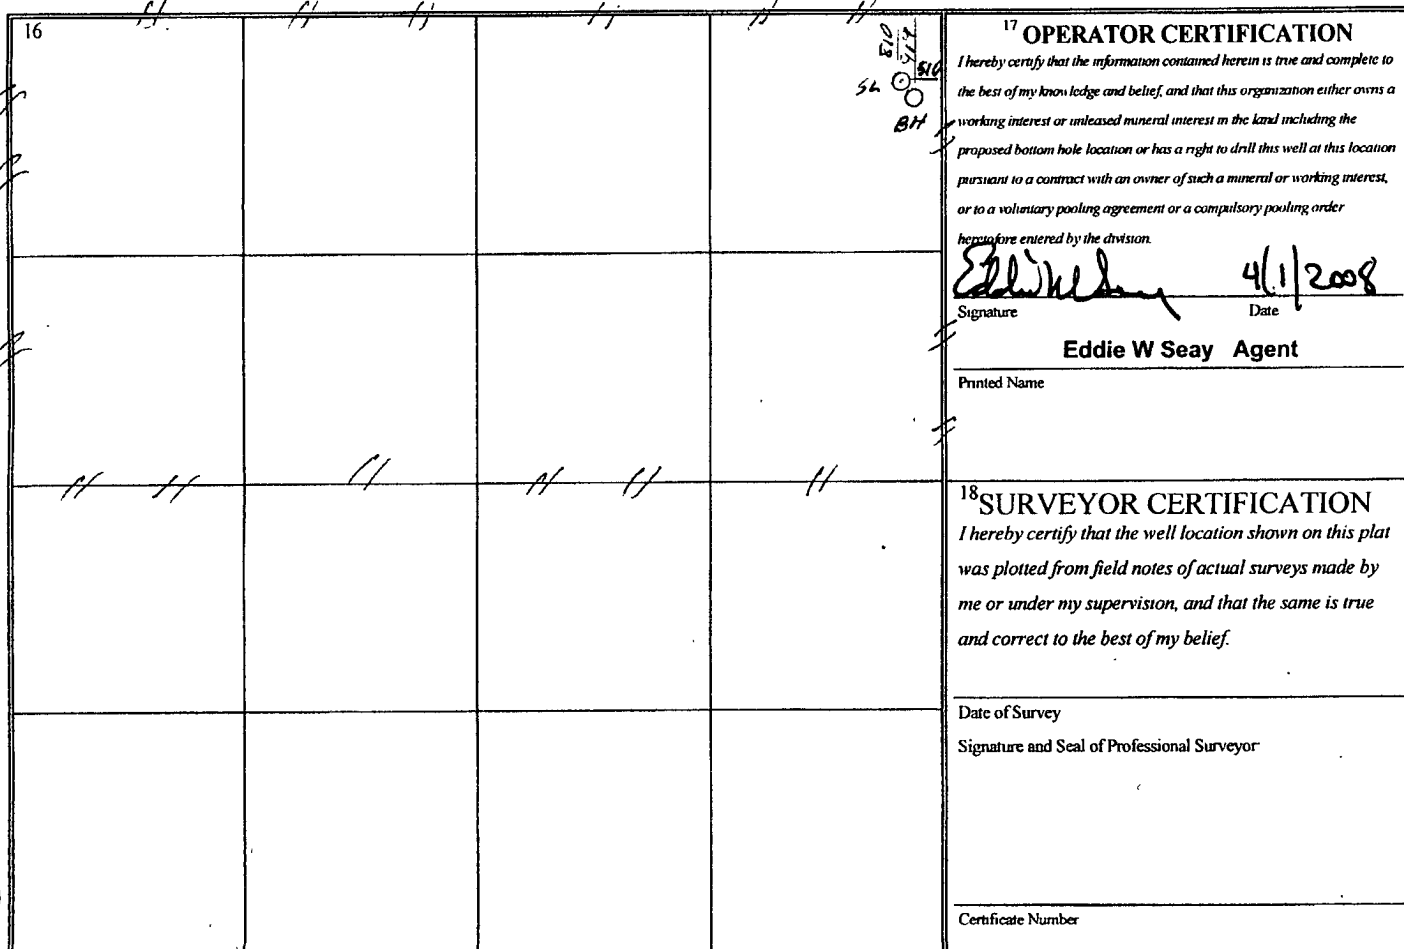 16
SL
510
BH
17 OPERATOR CERTIFICATION
I hereby certify that the information contained herein is true and complete to
the best of my knowledge and belief, and that this organization either owns a
working interest or unleased mineral interest in the land including the
proposed bottom hole location or has a right to drill this well at this location
pursuant to a contract with an owner of such a mineral or working interest,
or to a voluntary pooling agreement or a compulsory pooling order
heretofore entered by the division.
Eddie W Seay 4/1/2008
Signature Date
Eddie W Seay Agent
Printed Name
18 SURVEYOR CERTIFICATION
I hereby certify that the well location shown on this plat
was plotted from field notes of actual surveys made by
me or under my supervision, and that the same is true
and correct to the best of my belief.
Date of Survey
Signature and Seal of Professional Surveyor
Certificate Number